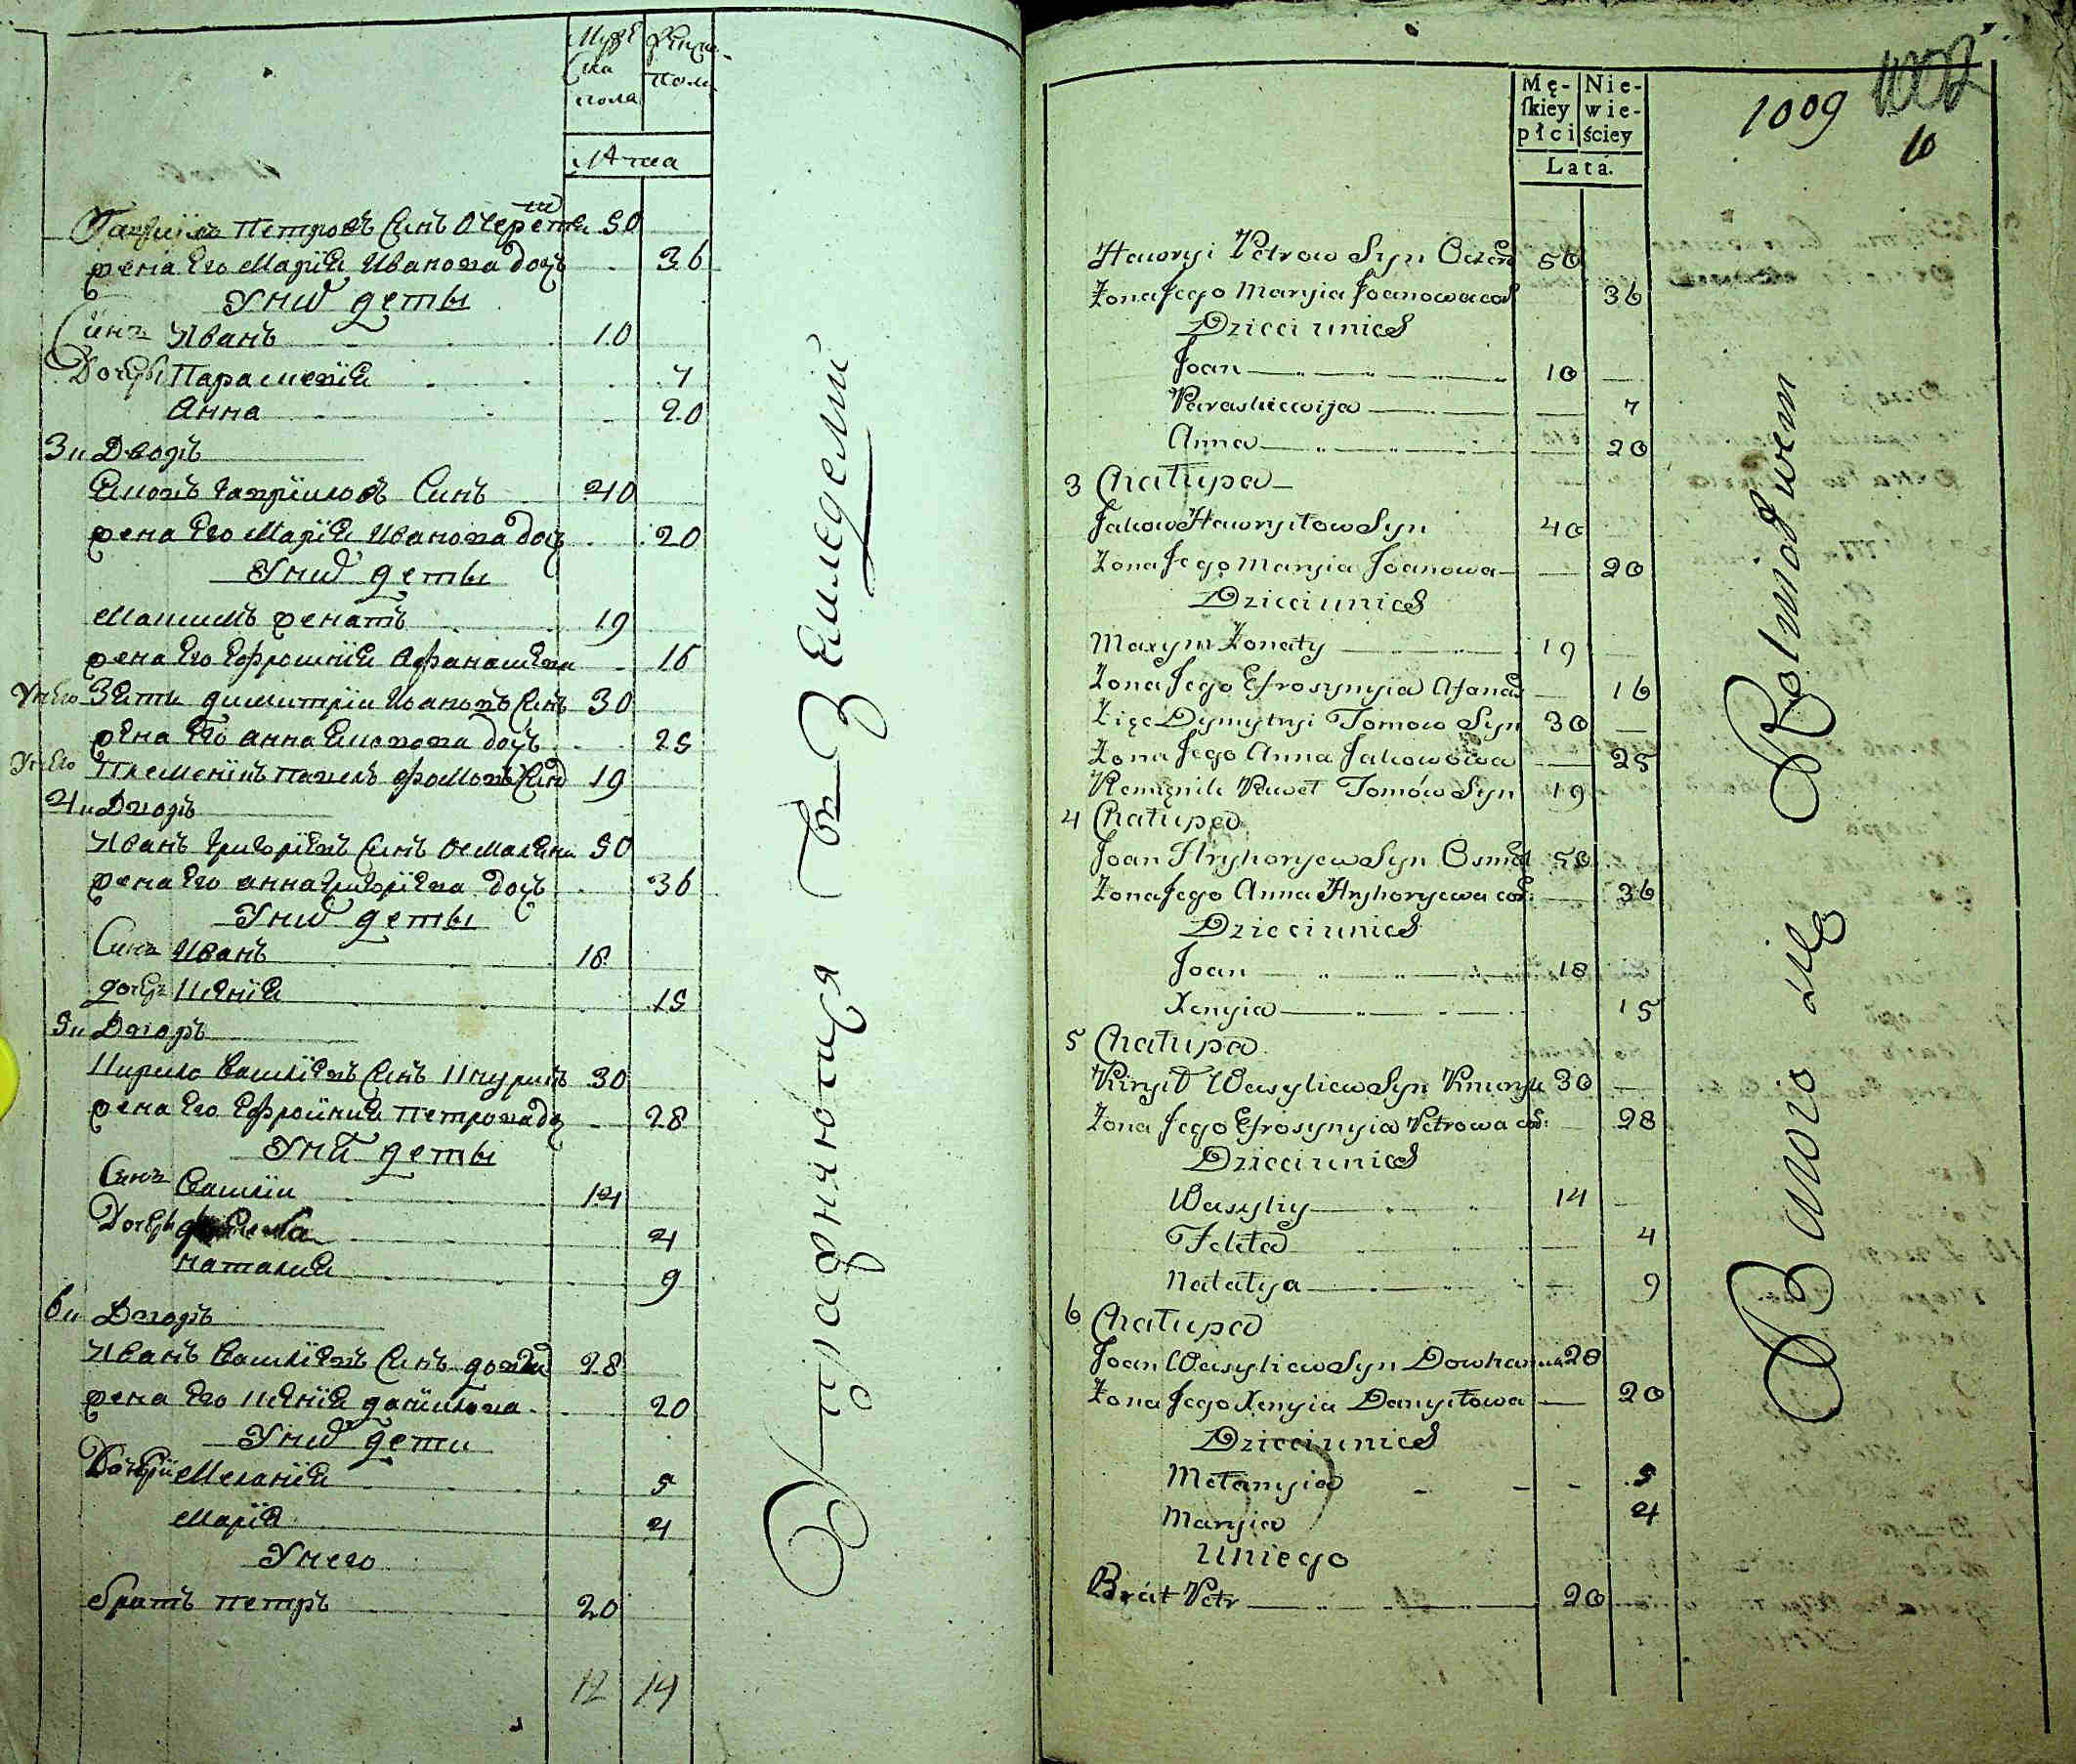 Мужеска пола
Женска пола
Лѣта
Гаврiилъ Петровъ Синъ Очерет 50
жена Его Марiя Иванова доч 36
У нихъ дети
Синъ Иванъ 10
Дочери Параскевiя 7
Анна 20
3 и Дворъ
Яковъ Гаврiиловъ Синъ 40
жена Его Марiя Иванова доч 20
У нихъ дети
Максимъ женатъ 19
жена Его Ефросинiя Афанасиева 16
У него Зять Димитрiй Синъ 30
жена Его Анна Яковова доч 25
У него Племенникъ Павелъ Фомовъ Синъ 19
4 и Дворъ
Иванъ Григорiевъ Синъ 50
жена Его Анна Григорiева доч 36
У нихъ дети
Синъ Иванъ 18
дочъ Ксенiя 15
5 и Дворъ
Кирило Василiевъ Синъ Кнуришъ 30
жена Его Ефросинiя Петрова до 28
У них дети
Синъ Василiи 14
Дочерь 4
Наталия 9
6 и Дворъ
Иванъ Василiевъ Синъ 28
жена Его Ксенiя Данiилова 20
У нихъ дети
Дочери Меланiя 5
Марiя 4
У него
братъ Петръ 20
12 14
Упражняются въ Земледелии
Mę-
ſkiey
płci
Nie-
wie-
ściey
Lata.
1009
10
Hawryi Petrow Syn 50
Zona Jego Maryia Joanowa cor 36
Dzieci unich
Joan 10
Paraskiewija 7
Anna 20
3 Chałupa
Jakow Hawryłow Syn 40
Zona Jego Maryia Joanowa 20
Dzieci unich
Maxym Zonaty 19
Zona Jego Efrosynyia Afanas 16
Zięc Dymytryi Tomow Syn 30
Zona Jego Anna Jakowowa 25
Plemięnik Paweł Tomów Syn 19
4 Chałupa
Joan Hryhoryew Syn Osmał 50
Zona Jego Anna Hryhoryewa cor. 36
Dzieci unich
Joan 18
Xenyia 15
5 Chałupa
Kirył Wasyliew Syn Knurysz 30
Zona Jego Efrosynyia Petrowa cor: 28
Dzieci unich
Wasyliy 14
Fekła 4
Natalya 9
6 Chałupa
Joan Wasyliew Syn 28
Zona Jego Xenyia Danyłowa 20
Dzieci unich
Mełanyia 5
Maryia 4
Uniego
Brat Petr 20
Bawio się Rolnictwem